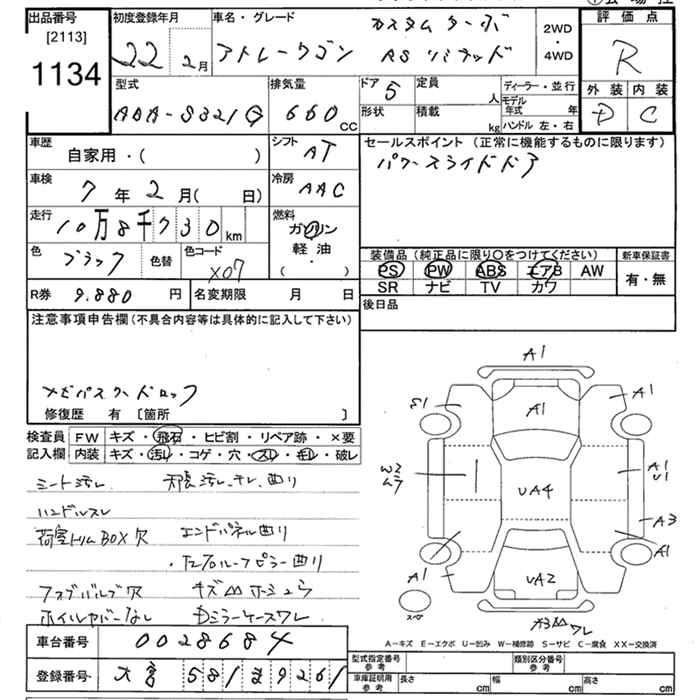 出品番号 [2113] 1134
初度登録年月 22年 2月
車名・グレード アトレーワゴン カスタムターボ RSリミテッド
2WD・4WD
評価点 R
外装 D 内装 C
型式 ABA-S321G
排気量 660 CC
ドア 5
形状
定員 人
積載 kg
ディーラー・並行
モデル年式 年
ハンドル 左・右
車歴 自家用・( )
シフト AT
セールスポイント (正常に機能するものに限ります)
パワースライドドア
車検 7年 2月( 日)
冷房 AAC
走行 10万8千730 km
燃料 ガソリン 軽油・( )
色 ブラック 色替
色コード X07
装備品(純正品に限り○をつけてください)
PS PW ABS エアB AW
SR ナビ TV カワ
新車保証書 有・無
R券 9.880 円 名変期限 月 日
後日品
注意事項申告欄(不具合内容等は具体的に記入して下さい)
修復歴 有 [箇所 ]
検査員 FW キズ・飛石・ヒビ割・リペア跡・×要
記入欄 内装 キズ・汚レ・コゲ・穴・スレ・キレ・破レ
シート汚レ
ハンドルスレ
荷室トリムBOX欠 エンドパネル曲り
左右ルーフピラー曲り
ホイルカバーなし Dミラーケースワレ
A1
S1 A1 A1
W2 ムラ UA4 A1 U1
A3
A1 UA2 A1
スペア ワレ
A-キズ E-エクボ U-凹み W-補修跡 S-サビ C-腐食 XX-交換済
車台番号 0028684
登録番号 大宮 581 ま 9261
型式指定番号 参考 類別区分番号 参考
車庫証明用 参考 長さ cm 幅 cm 高さ cm